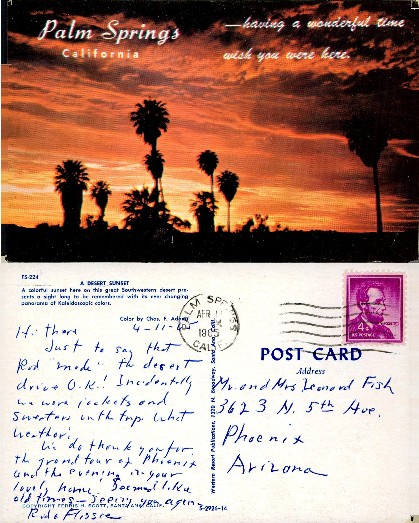 Palm Springs
California
—having a wonderful time
wish you were here.
FS-224
A DESERT SUNSET
A colorful sunset here on this great Southwestern desert pre-
sents a sight long to be remembered with its ever changing
panorama of Kaleidoscopic colors.
Color by Chas. F. Adams
4-11-
Hi there
Just to say that
Rod "made" the desert
drive O.K.! Incidentally
we wore jackets and
sweaters on the trip. What
weather!
We do thank you for
the grand tour of Phoenix
and the evening in your
lovely home. Seemed like
old times - seeing you again
Rod &
COPYRIGHT FERRIS H. SCOTT, SANTA ANA, CALIF.
Western Resort Publications, N. Broadway, Santa Ana, Calif.
PALM SPRINGS
APR
CALIF
4¢
U.S. POSTAGE
POST CARD
Address
Mr. and Mrs Leonard Fish
3623 N. 5th Ave.
Phoenix
Arizona
S-2924-14